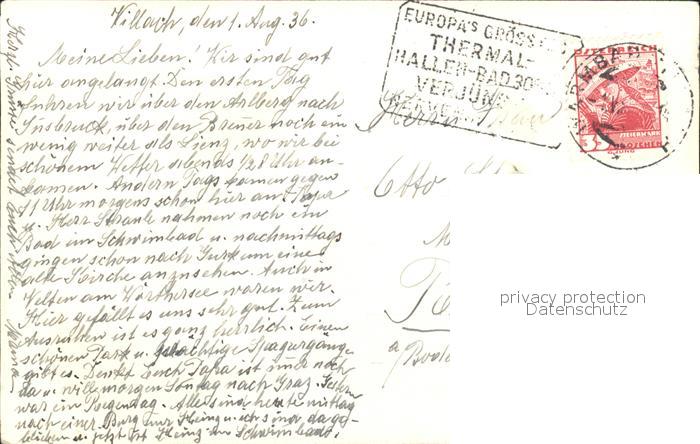 Villach, den 1. Aug. 36.
Meine Lieben! Wir sind gut
hier angelangt. Den ersten Tag
fuhren wir über den Arlberg nach
Insbruck, über den Brenner noch ein
wenig weiter als Lienz, wo wir bei
schönem Wetter abends ½8 Uhr an-
kamen. Andern Tags kamen gegen
11 Uhr morgens schon hier an. Papa
u. Herr Straub nahmen noch ein
Bad im Schwimbad u. nachmittags
gingen schon nach Gurk um eine
alte Kirche anzusehen. Auch in
Velten am Wörthersee waren wir.
Hier gefällt es uns sehr gut. Zum
Ausruhen ist es ganz herrlich. Einen
schönen Park u. prächtige Spaziergänge
gibt es. Denkt Euch Papa ist immer noch
da u. will morgen Sontag nach Graz. Gestern
war ein Regentag. Alle sind heute mittag
nach einer Burg nur Heinz u. ich sind da ge-
blieben u. jetzt ist Heinz im Schwimbad.
Herzl. Grüsse sendet euch allen Mama
EUROPA'S GRÖSS
THERMAL-
HALLEN-BAD 30°
VERJÜN
WARMBAD
ÖSTERREICH
STEIERMARK
GROSCHEN
Herrn
Otto
M
a/Bode
privacy protection
Datenschutz